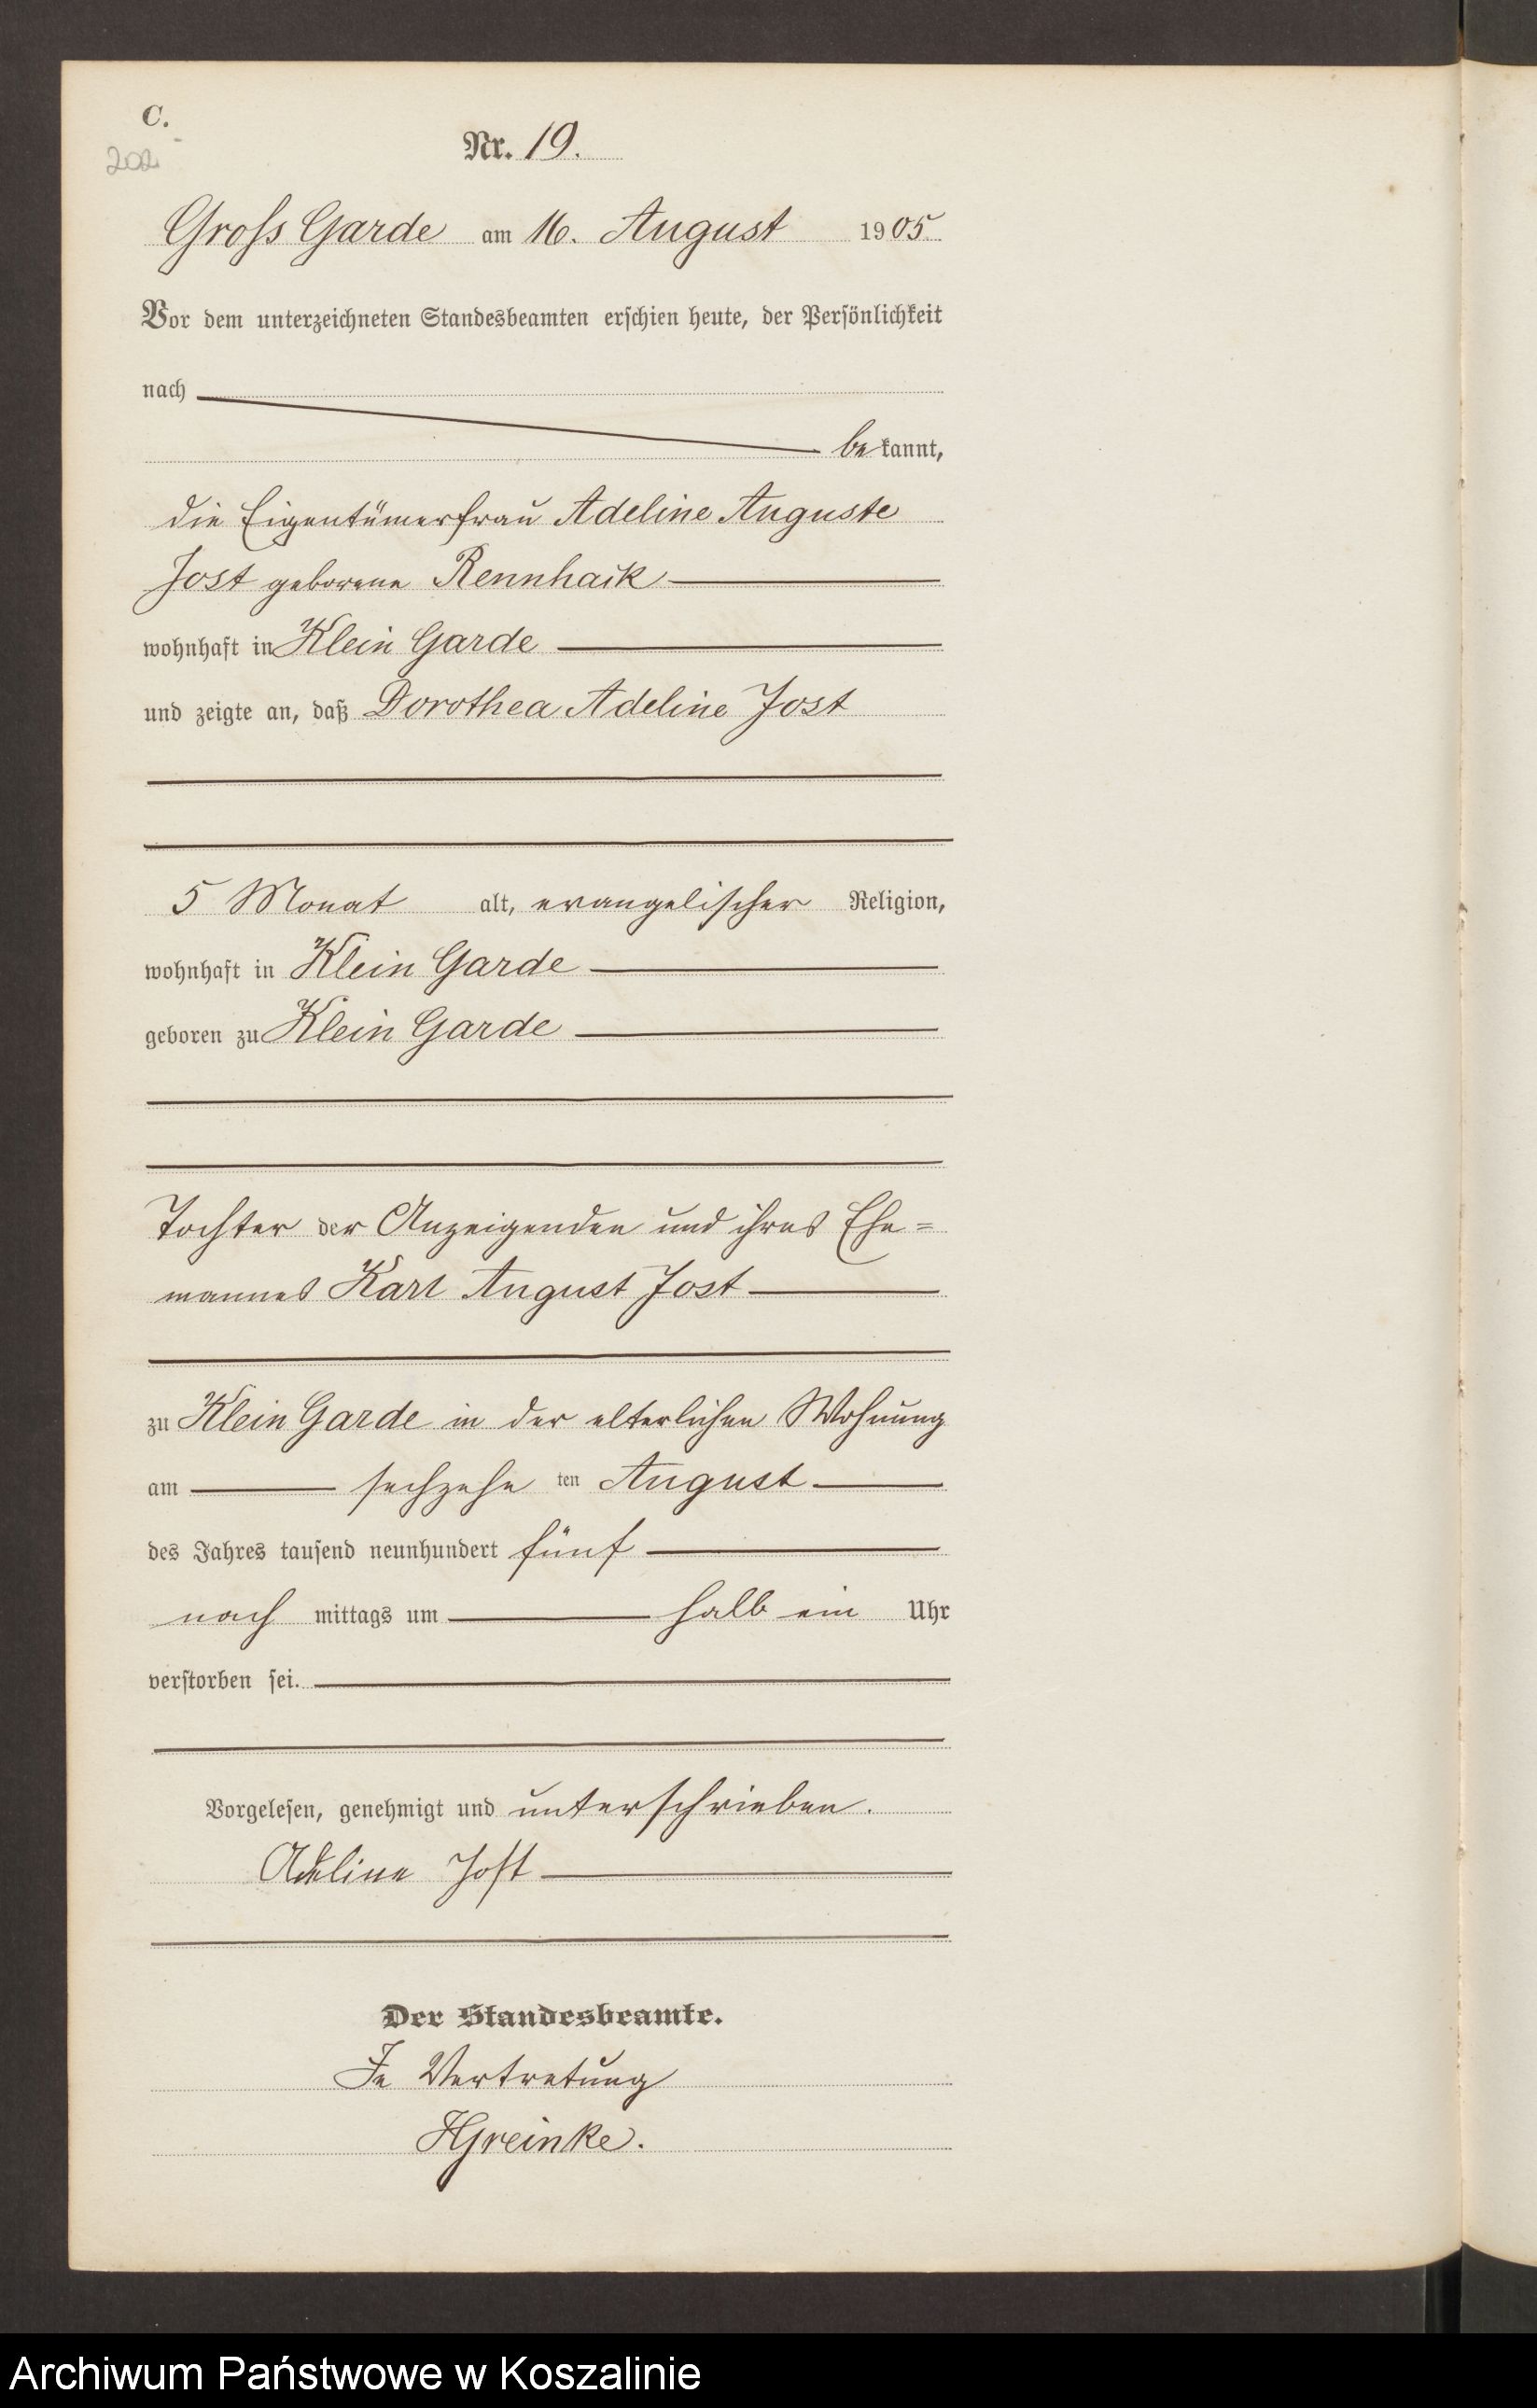 C.
202
Nr. 19.
Gross Garde am 16. August 1905
Vor dem unterzeichneten Standesbeamten erschien heute, der Persönlichkeit
nach
bekannt,
die Eigentümerfrau Adeline Auguste
Jost geborene Rennhack
wohnhaft in Klein Garde
und zeigte an, daß Dorothea Adeline Jost
5 Monat alt, evangelischer Religion,
wohnhaft in Klein Garde
geboren zu Klein Garde
Tochter der Anzeigenden und ihres Ehe=
mannes Karl August Jost
zu Klein Garde in der elterlichen Wohnung
am sechzehn ten August
des Jahres tausend neunhundert fünf
nach mittags um halb ein Uhr
verstorben sei.
Vorgelesen, genehmigt und unterschrieben.
Adeline Jost
Der Standesbeamte.
In Vertretung
HGreinke.
Archiwum Państwowe w Koszalinie